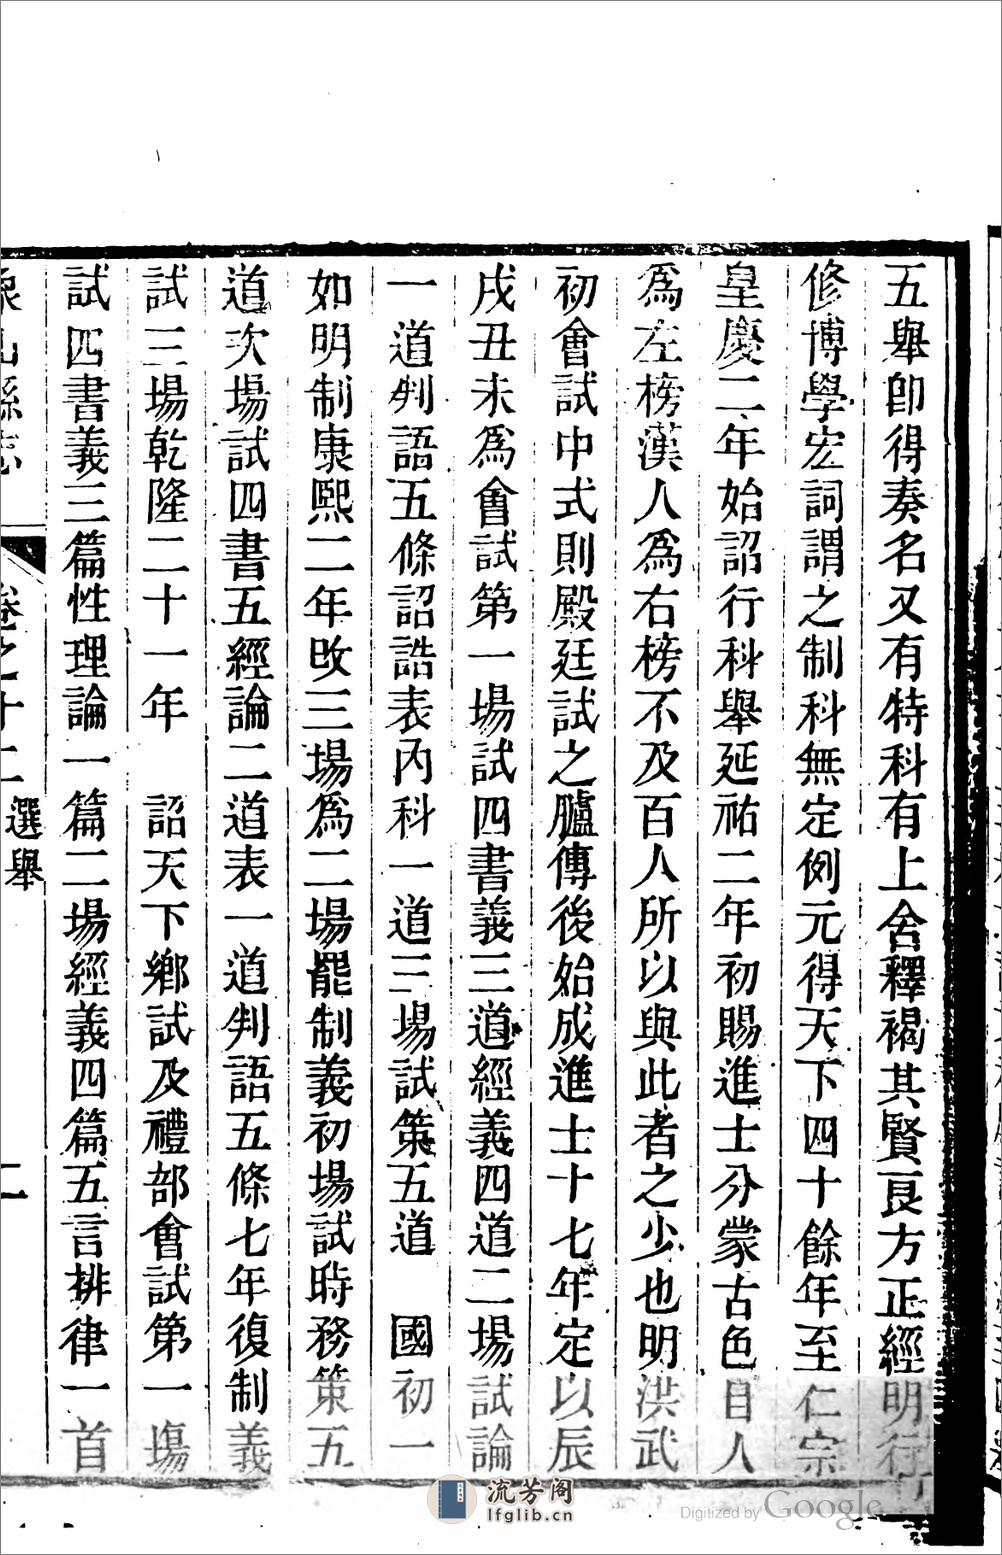 五舉卽得奏名又有特科有上舍釋褐其賢良方正經明行
修博學宏詞謂之制科無定例元得天下四十餘年至仁宗
皇慶二年始詔行科舉延祐二年初賜進士分蒙古色目人
爲左榜漢人爲右榜不及百人所以與此者之少也明洪武
初會試中式則殿廷試之臚傳後始成進士十七年定以辰
戌丑未爲會試第一場試四書義三道經義四道二場試論
一道判語五條詔誥表內科一道三場試策五道　國初一
如明制康熙二年改三場爲二場罷制義初場試時務策五
道次場試四書五經論二道表一道判語五條七年復制義
試三場乾隆二十一年　詔天下鄉試及禮部會試第一塲
試四書義三篇性理論一篇二場經義四篇五言排律一首
象山縣志
卷之十二
選舉
二
流芳阁
lfglib.cn
Digitized by Google